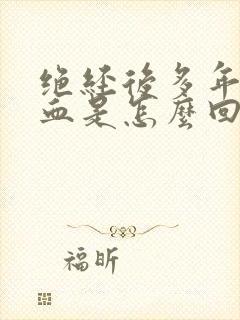 绝经後多年
血是怎麼回
福昕